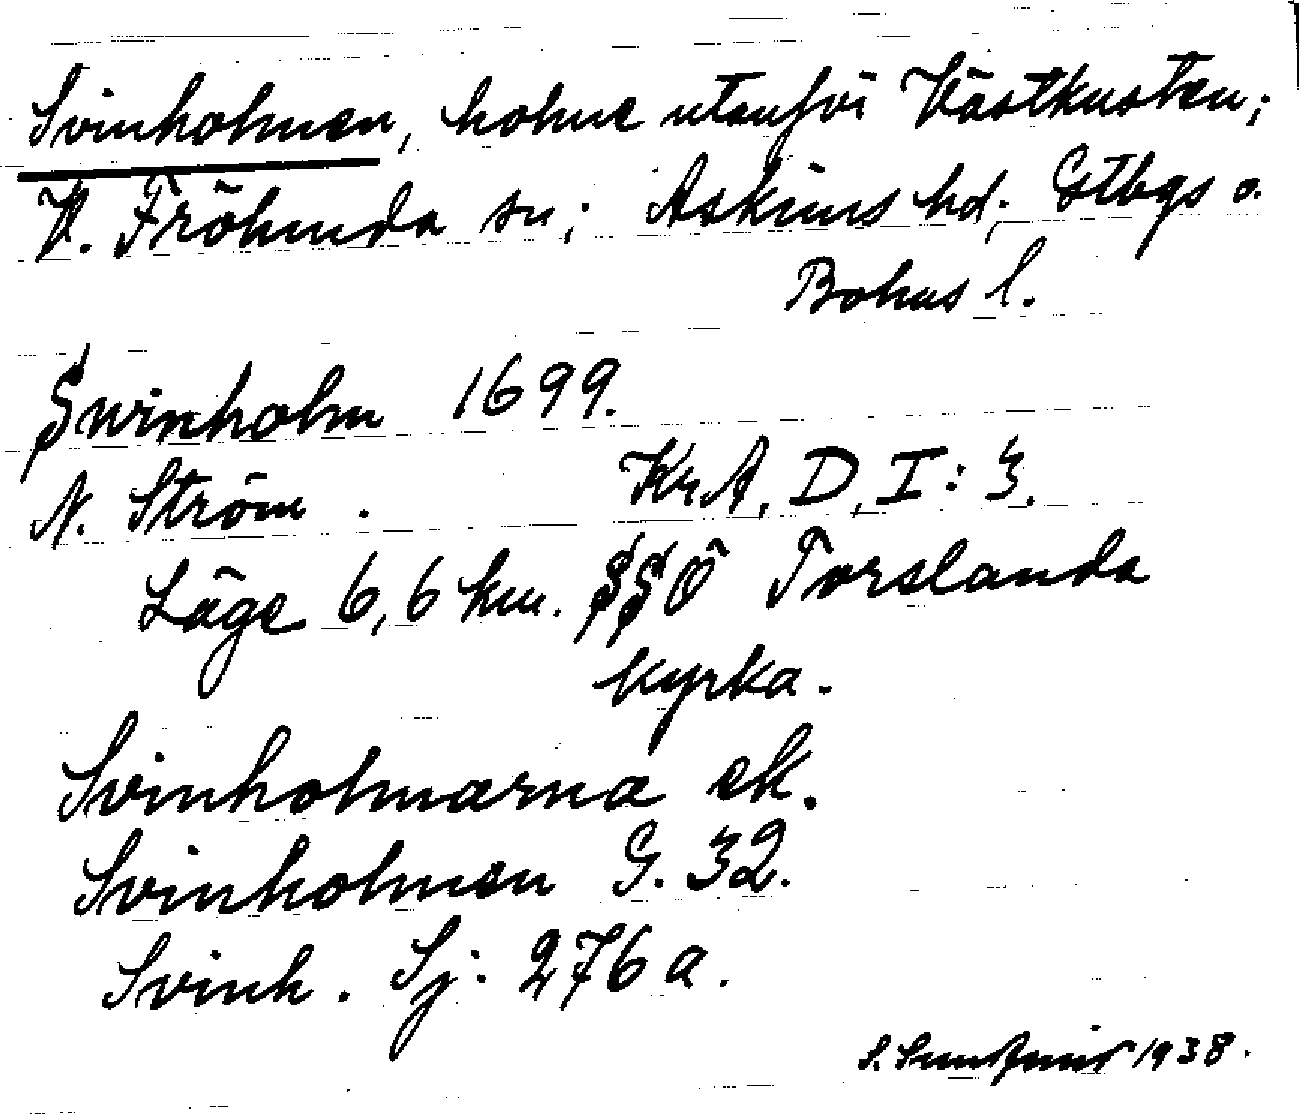 Svinholmen, holme utanför Västkusten;
V. Frölunda sn; Askims hd. Gtbgs o.
Bohus l.
Swinholm 1699.
N. Ström. KrA, D, I: 3.
Läge 6,6 km. SSÖ Torslanda
kyrka.
Svinholmarna ek.
Svinholmen G. 32.
Svinh. Sj: 276 a.
S. 1938.